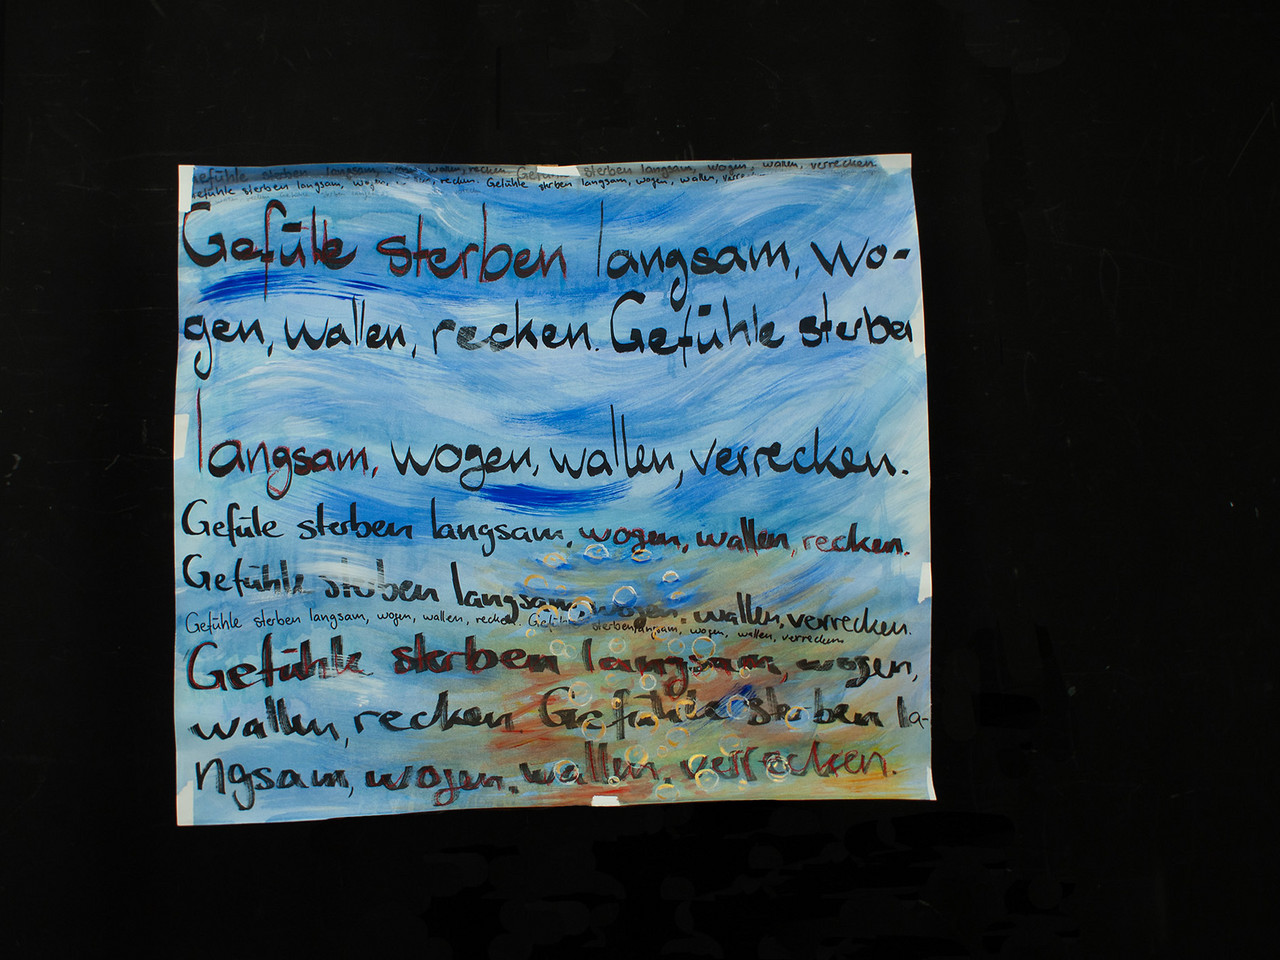 Gefühle sterben langsam, wallen, recken. Gefühle sterben langsam, wogen, wallen, verrecken.
Gefühle sterben langsam, wogen, recken. Gefühle sterben langsam, wogen, wallen,
Gefüle sterben langsam, wo-
gen, wallen, recken. Gefühle sterben
langsam, wogen, wallen, verrecken.
Gefüle sterben langsam, wogen, wallen, recken.
Gefühle sterben langsam, wogen, wallen, verrecken.
Gefühle sterben langsam, wogen, wallen, recken. Gefühle sterben langsam, wogen, wallen, verrecken
Gefühle sterben langsam, wogen,
wallen, recken Gefühle sterben la-
ngsam, wogen, wallen, verrecken.